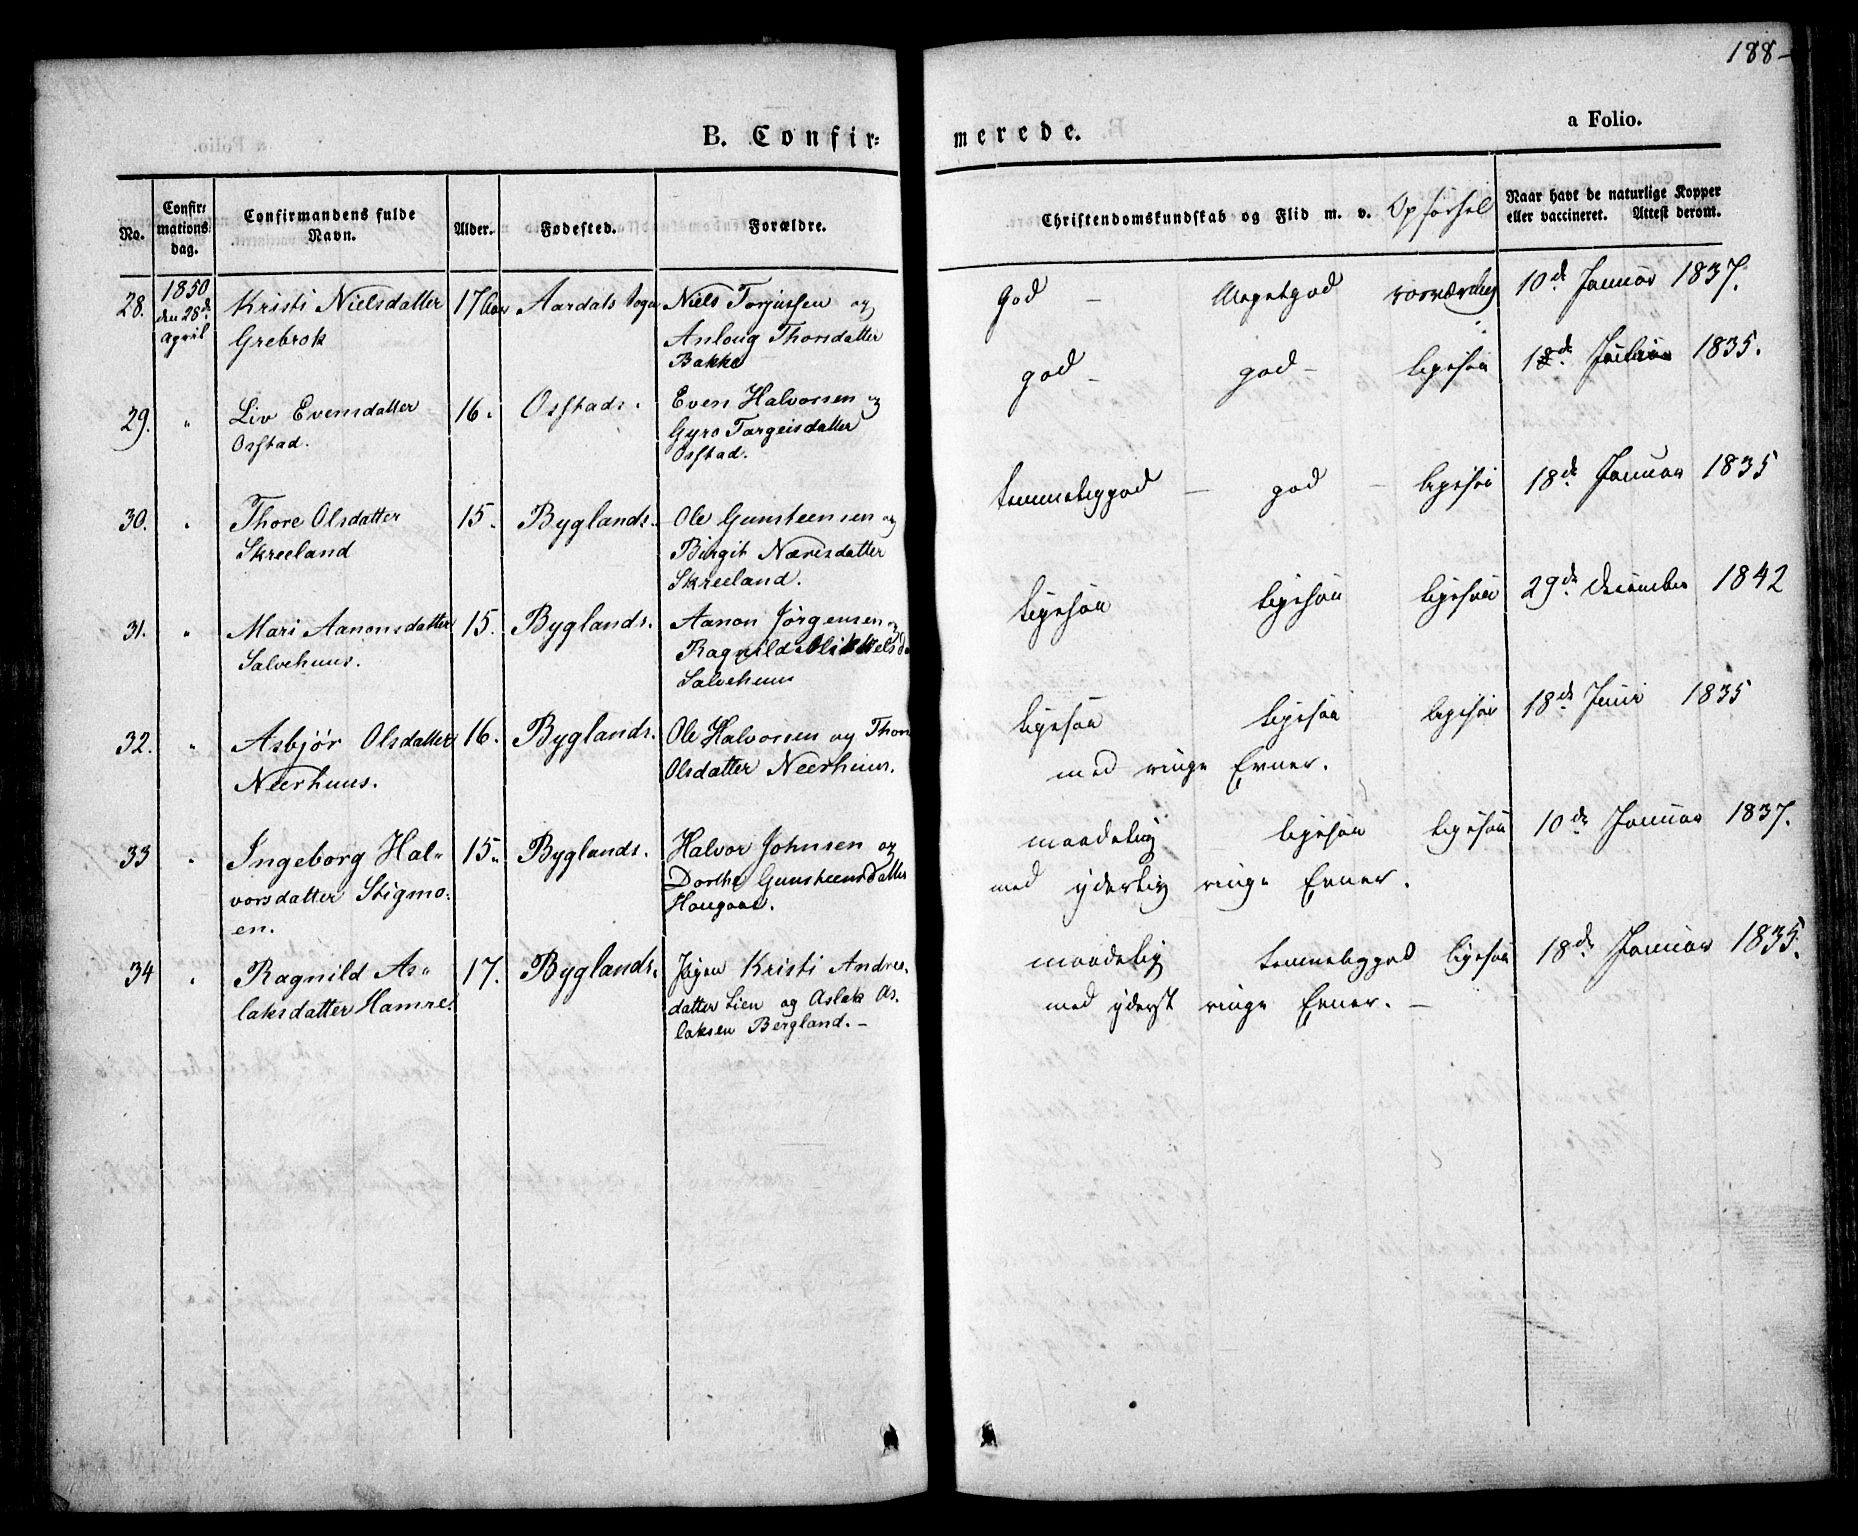 188
B. Confirmerede.
a Folio.
No.
Confirmations dag.
Confirmandens fulde Navn.
Alder.
Fødested.
Forældre.
Christendomskundskab og Flid m. v. Opførsel
Naar havt de naturlige Kopper
eller vaccineret. Attest derom.
28. 1850 den 28de april
Kristi Nielsdatter
Grebrok
17 Aar
Aardals Sogn
Niels Torjussen og
Anloug Thorsdatter
Bakke
God – Megetgod
10de Januar 1837.
29. " Liv Evensdatter
Osstad.
16.
Osstads.
Even Halvorsen og
Gyro Targeisdatter
Osstad.
god – god – ligesaa
1835.
30. " Thore Olsdatter
Skreeland
15.
Byglands.
Ole Gunsteensen og
Birgit Næridsdatter
Skreeland.
temmeliggod – god – ligesaa
18de Januar 1835
31. " Mari Aanonsdatter
Salvehuus.
15.
Byglands.
Aanon Jørgensen og
Ragnild Mikkelsd
Salvehuus
ligesaa ligesaa ligesaa
29de December 1842
32. " Asbjør Olsdatter
Neerhuus.
16.
Byglands.
Ole Halvorsen og Thore
Olsdatter Neerhuus.
ligesaa ligesaa ligesaa
med ringe Evner.
18de Juni 1835
33 " Ingeborg Hal-
vorsdatter Stigmo-
en.
15.
Byglands.
Halvor Johnsen og
Dorthe Gunsteensdatter
Haugaae.
maadelig ligesaa ligesaa
med yderlig ringe Evner.
10de Januar 1837.
34 " Ragnild As-
laksdatter Hamre.
17.
Byglands.
Kristi Andres-
datter Lien og Aslak As-
laksen Bergland. –
maadelig temmeliggod ligesaa
med yderst ringe Evner. –
18de Januar 1835.